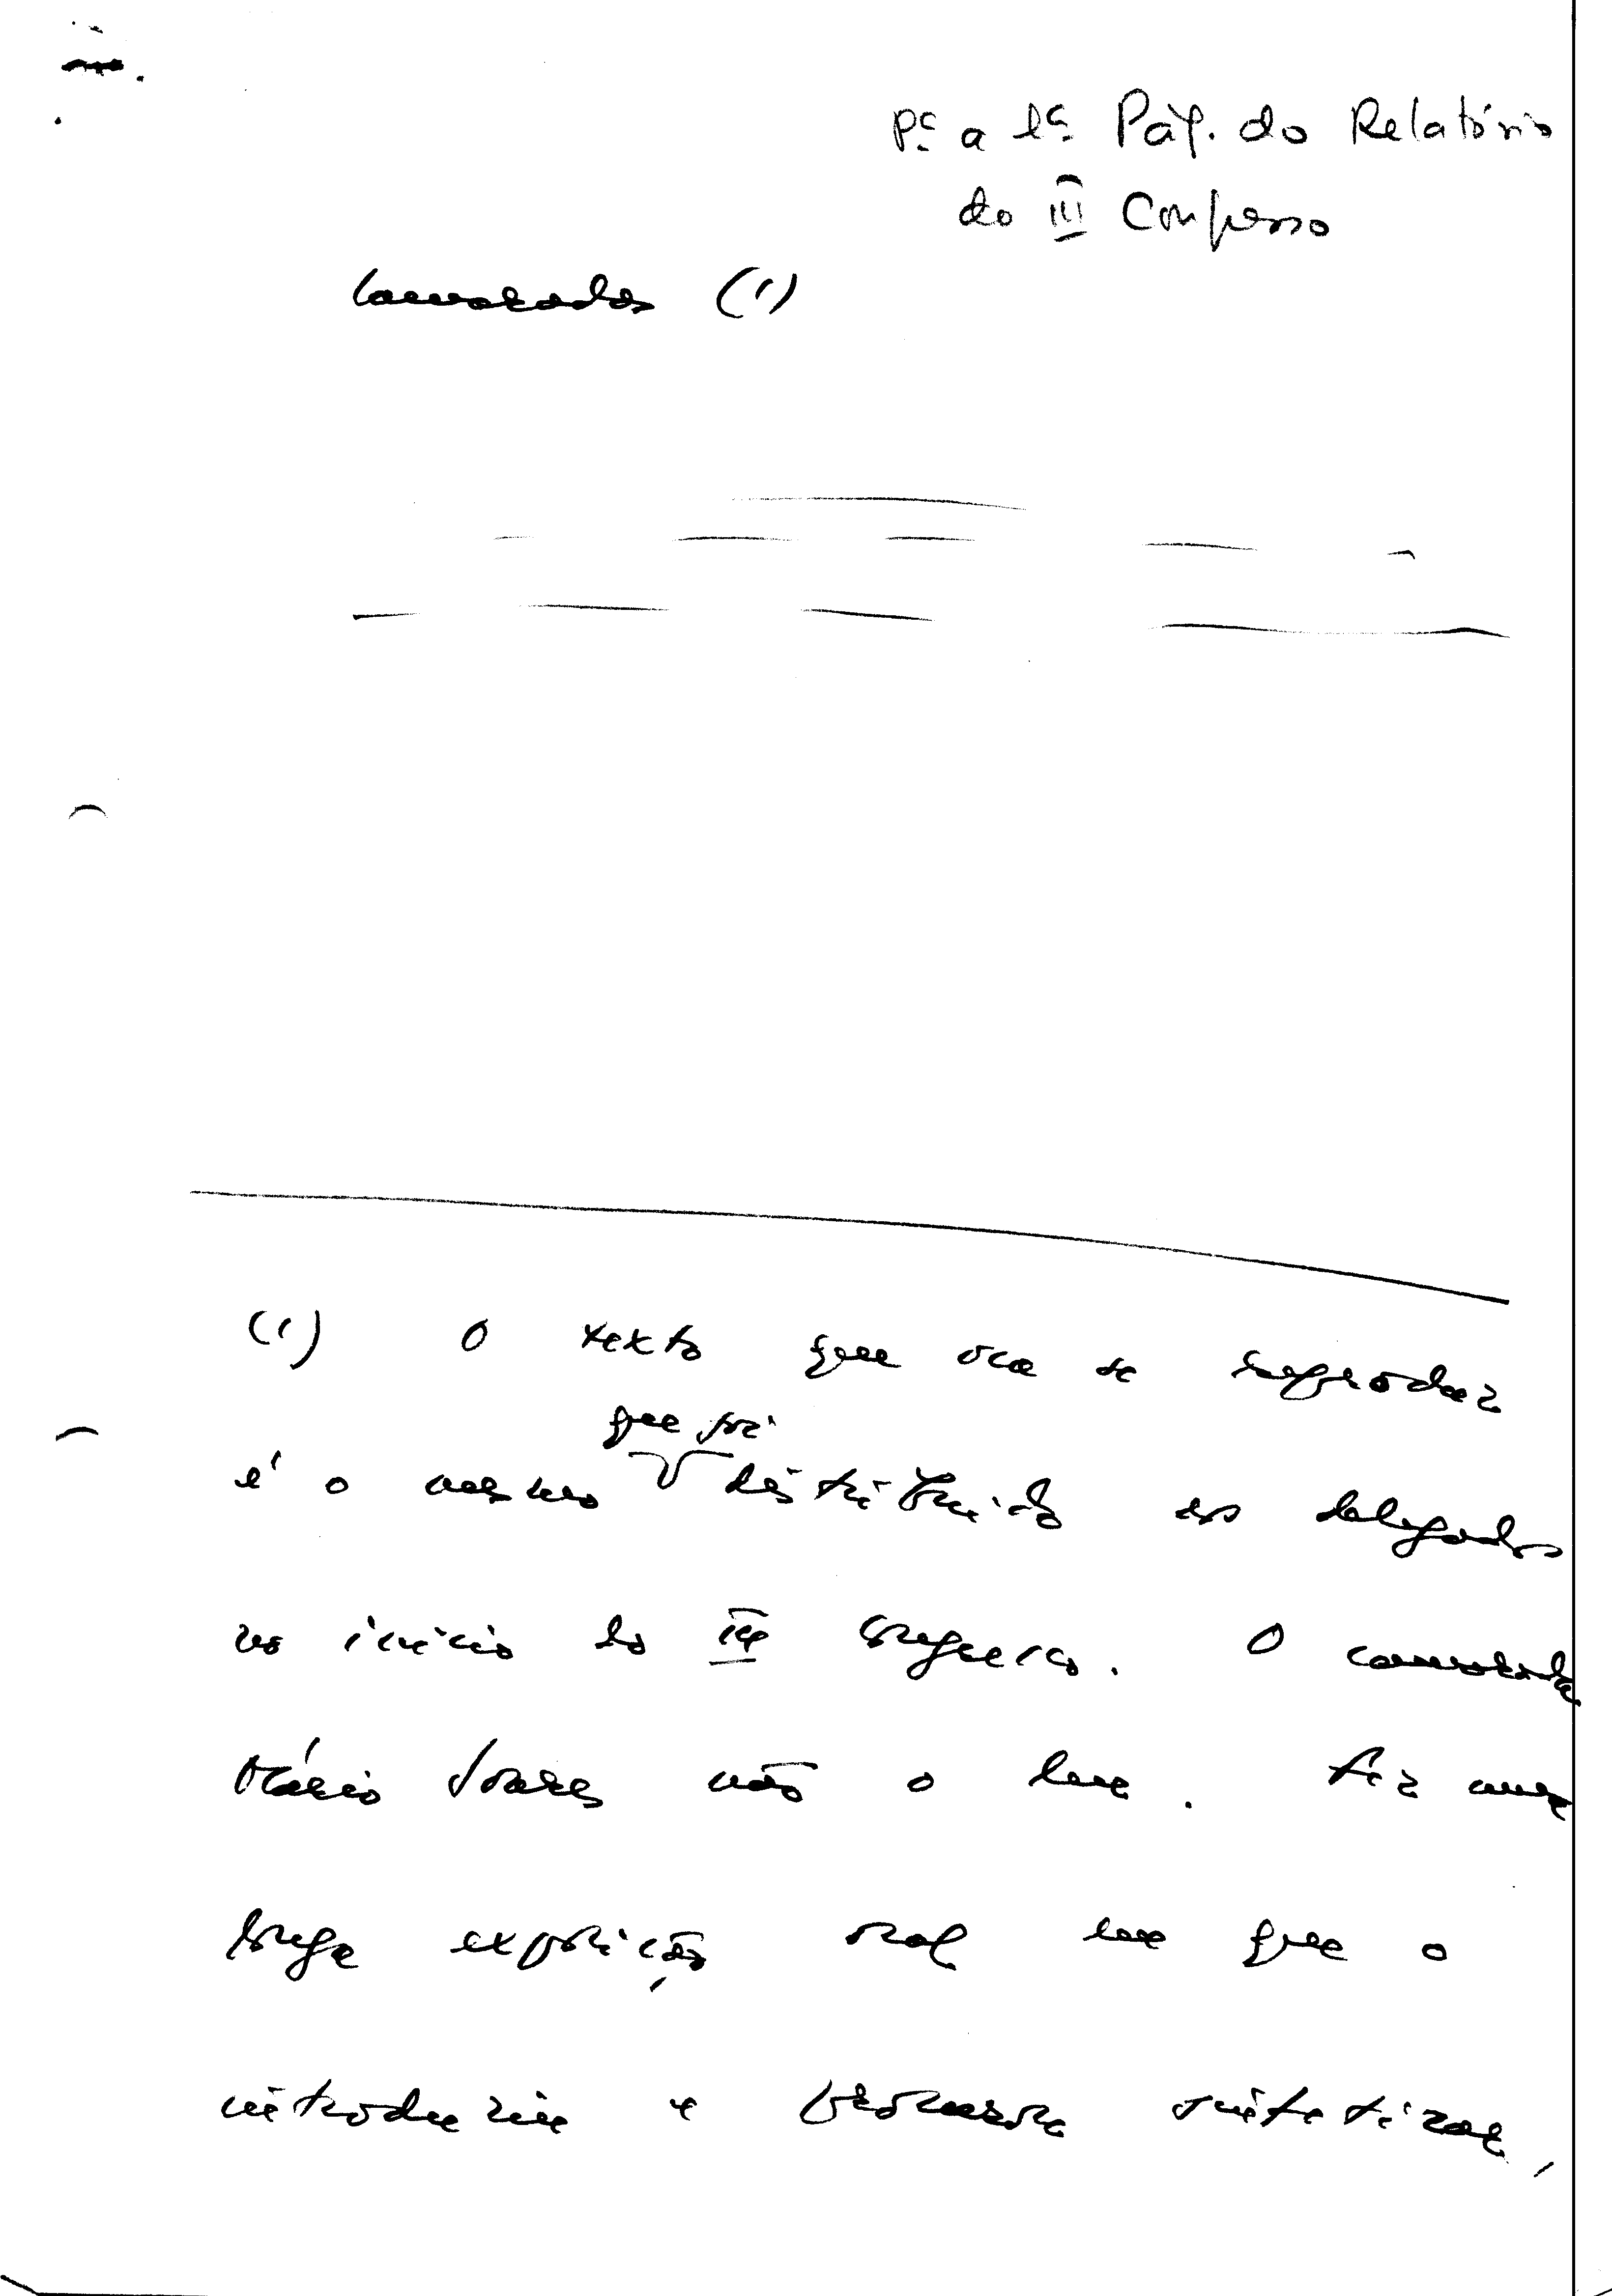 Pª a 1ª Pág. do Relatório
do III Congresso
Camaradas (1)
(1) O texto que ora se reproduz
que foi
é o mesmo distribuído aos delegados
no início do III Congresso. O camarada
Mário Soares não o leu. Fez uma
longa exposição oral em que o
introduziu e procurou sintetizar,